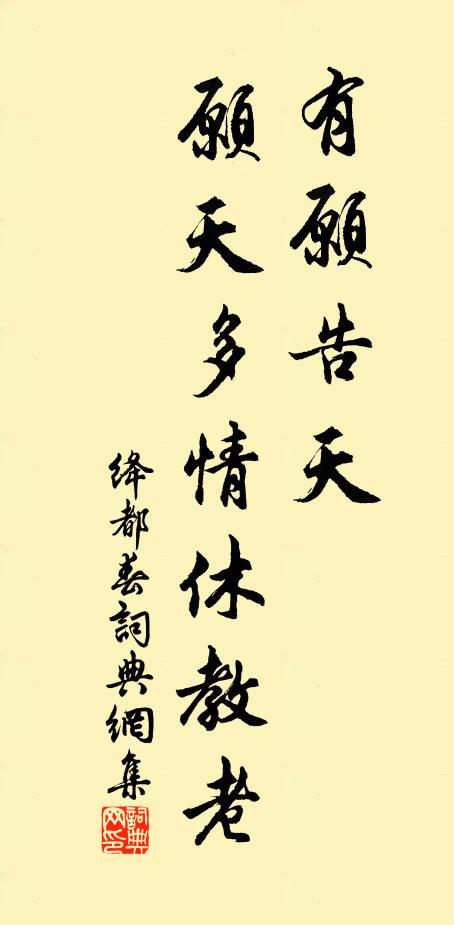 有願告天
願天多情休教老
絳都春詞典網集
詞典
网印